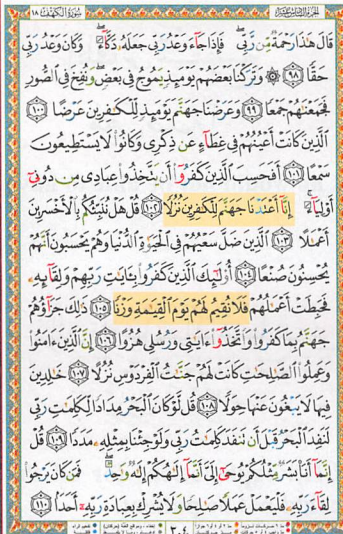 الجزء السادس عشر سورة الكهف ١٨
قَالَ هَٰذَا رَحْمَةٌ مِّن رَّبِّي ۖ فَإِذَا جَاءَ وَعْدُ رَبِّي جَعَلَهُ دَكَّاءَ ۖ وَكَانَ وَعْدُ رَبِّي
حَقًّا ﴿٩٨﴾ ۞ وَتَرَكْنَا بَعْضَهُمْ يَوْمَئِذٍ يَمُوجُ فِي بَعْضٍ ۖ وَنُفِخَ فِي الصُّورِ
فَجَمَعْنَاهُمْ جَمْعًا ﴿٩٩﴾ وَعَرَضْنَا جَهَنَّمَ يَوْمَئِذٍ لِّلْكَافِرِينَ عَرْضًا ﴿١٠٠﴾
الَّذِينَ كَانَتْ أَعْيُنُهُمْ فِي غِطَاءٍ عَن ذِكْرِي وَكَانُوا لَا يَسْتَطِيعُونَ
سَمْعًا ﴿١٠١﴾ أَفَحَسِبَ الَّذِينَ كَفَرُوا أَن يَتَّخِذُوا عِبَادِي مِن دُونِي
أَوْلِيَاءَ ۚ إِنَّا أَعْتَدْنَا جَهَنَّمَ لِلْكَافِرِينَ نُزُلًا ﴿١٠٢﴾ قُلْ هَلْ نُنَبِّئُكُم بِالْأَخْسَرِينَ
أَعْمَالًا ﴿١٠٣﴾ الَّذِينَ ضَلَّ سَعْيُهُمْ فِي الْحَيَاةِ الدُّنْيَا وَهُمْ يَحْسَبُونَ أَنَّهُمْ
يُحْسِنُونَ صُنْعًا ﴿١٠٤﴾ أُولَٰئِكَ الَّذِينَ كَفَرُوا بِآيَاتِ رَبِّهِمْ وَلِقَائِهِ
فَحَبِطَتْ أَعْمَالُهُمْ فَلَا نُقِيمُ لَهُمْ يَوْمَ الْقِيَامَةِ وَزْنًا ﴿١٠٥﴾ ذَٰلِكَ جَزَاؤُهُمْ
جَهَنَّمُ بِمَا كَفَرُوا وَاتَّخَذُوا آيَاتِي وَرُسُلِي هُزُوًا ﴿١٠٦﴾ إِنَّ الَّذِينَ آمَنُوا
وَعَمِلُوا الصَّالِحَاتِ كَانَتْ لَهُمْ جَنَّاتُ الْفِرْدَوْسِ نُزُلًا ﴿١٠٧﴾ خَالِدِينَ
فِيهَا لَا يَبْغُونَ عَنْهَا حِوَلًا ﴿١٠٨﴾ قُل لَّوْ كَانَ الْبَحْرُ مِدَادًا لِّكَلِمَاتِ رَبِّي
لَنَفِدَ الْبَحْرُ قَبْلَ أَن تَنفَدَ كَلِمَاتُ رَبِّي وَلَوْ جِئْنَا بِمِثْلِهِ مَدَدًا ﴿١٠٩﴾ قُلْ
إِنَّمَا أَنَا بَشَرٌ مِّثْلُكُمْ يُوحَىٰ إِلَيَّ أَنَّمَا إِلَٰهُكُمْ إِلَٰهٌ وَاحِدٌ ۖ فَمَن كَانَ يَرْجُو
لِقَاءَ رَبِّهِ فَلْيَعْمَلْ عَمَلًا صَالِحًا وَلَا يُشْرِكْ بِعِبَادَةِ رَبِّهِ أَحَدًا ﴿١١٠﴾
٣٠٤